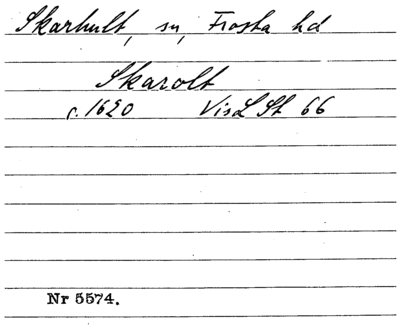 Skarhult, sn, Frosta hd
Skarolt
c. 1620 VisL St 66
Nr 5574.